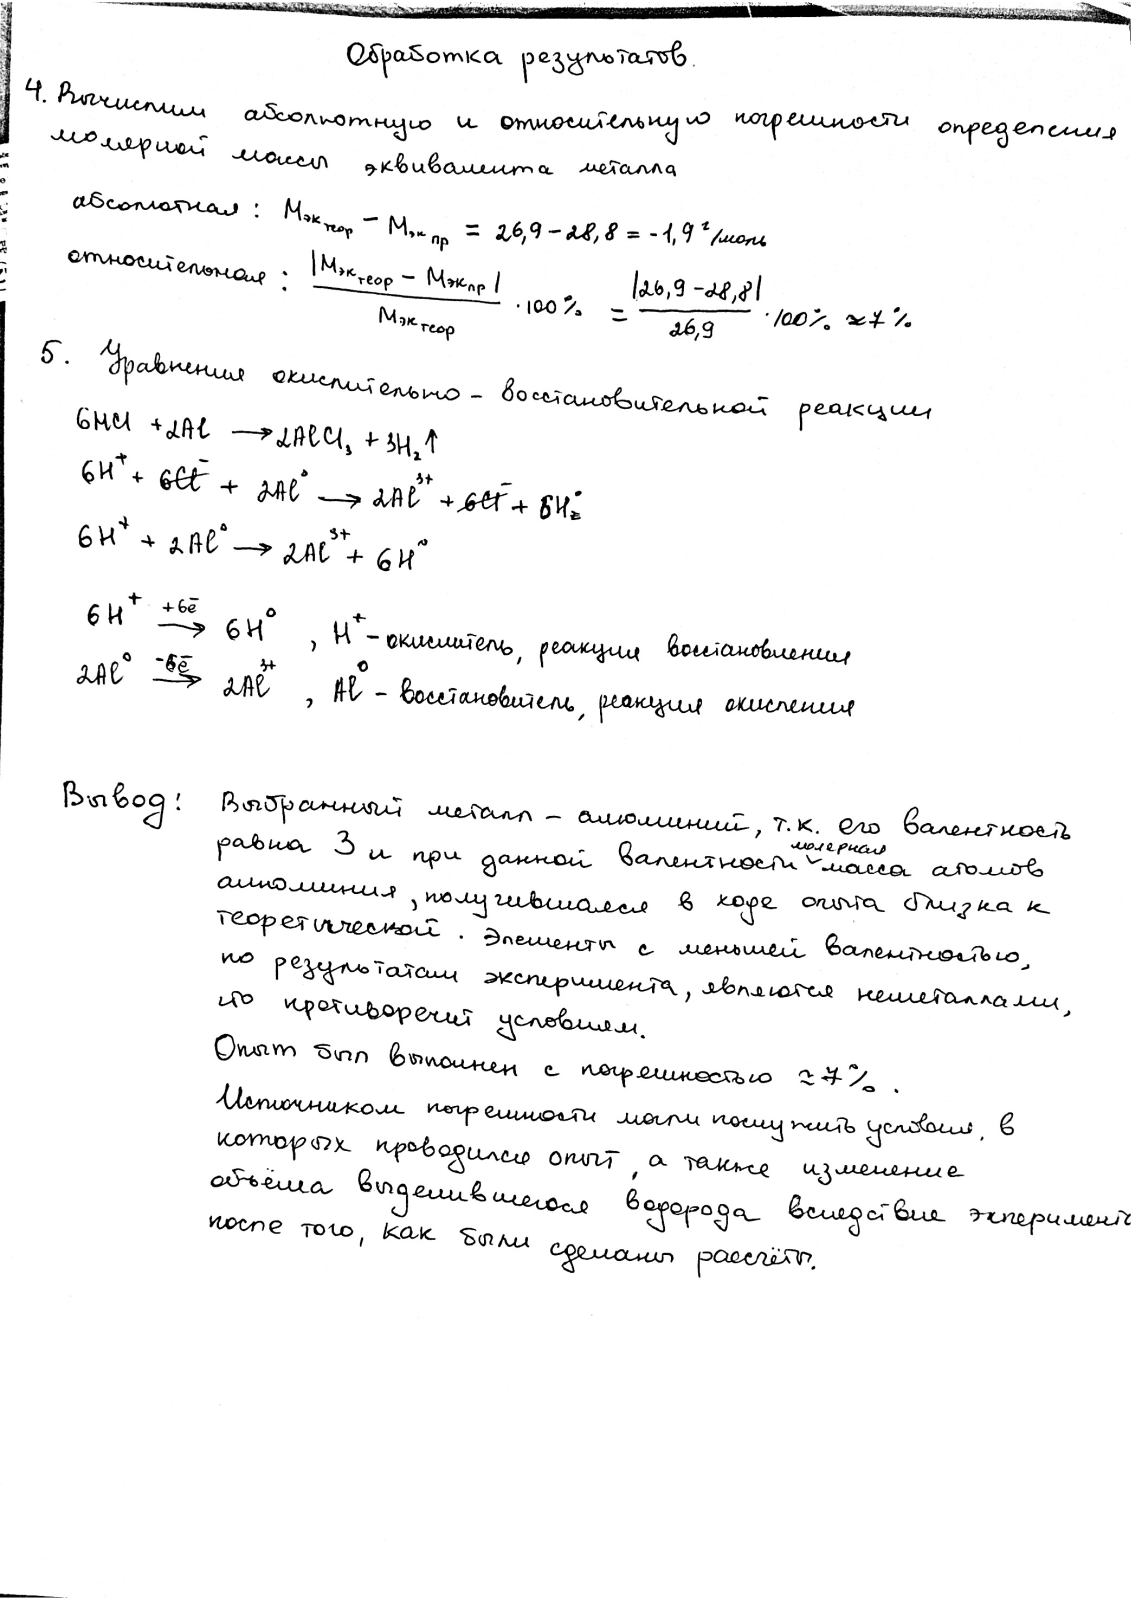 Обработка результатов.
4. Вычислим абсолютную и относительную погрешности определения
молярной массы эквивалента металла
абсолютная: Mэк теор − Mэк пр = 26,9 − 28,8 = −1,9 г/моль
относительная: |Mэк теор − Mэк пр| / Mэк теор · 100% = |26,9 − 28,8| / 26,9 · 100% ≈ 7%
5. Уравнения окислительно – восстановительной реакции
6HCl + 2Al → 2AlCl₃ + 3H₂↑
6H⁺ + 6Cl⁻ + 2Al⁰ → 2Al³⁺ + 6Cl⁻ + 6H₂⁰
6H⁺ + 2Al⁰ → 2Al³⁺ + 6H⁰
6H⁺ +6ē → 6H⁰, H⁺ – окислитель, реакция восстановления
2Al⁰ −6ē → 2Al³⁺, Al⁰ – восстановитель, реакция окисления
Вывод: Выбранный металл – алюминий, т.к. его валентность
равна 3 и при данной валентности молярная масса атомов
алюминия, получившаяся в ходе опыта близка к
теоретической. Элементы с меньшей валентностью,
по результатам эксперимента, являются неметаллами,
что противоречит условиям.
Опыт был выполнен с погрешностью ≈ 7%.
Источником погрешности могли послужить условия, в
которых проводился опыт, а также изменение
объёма выделившегося водорода вследствие эксперимента
после того, как были сделаны рассчёты.